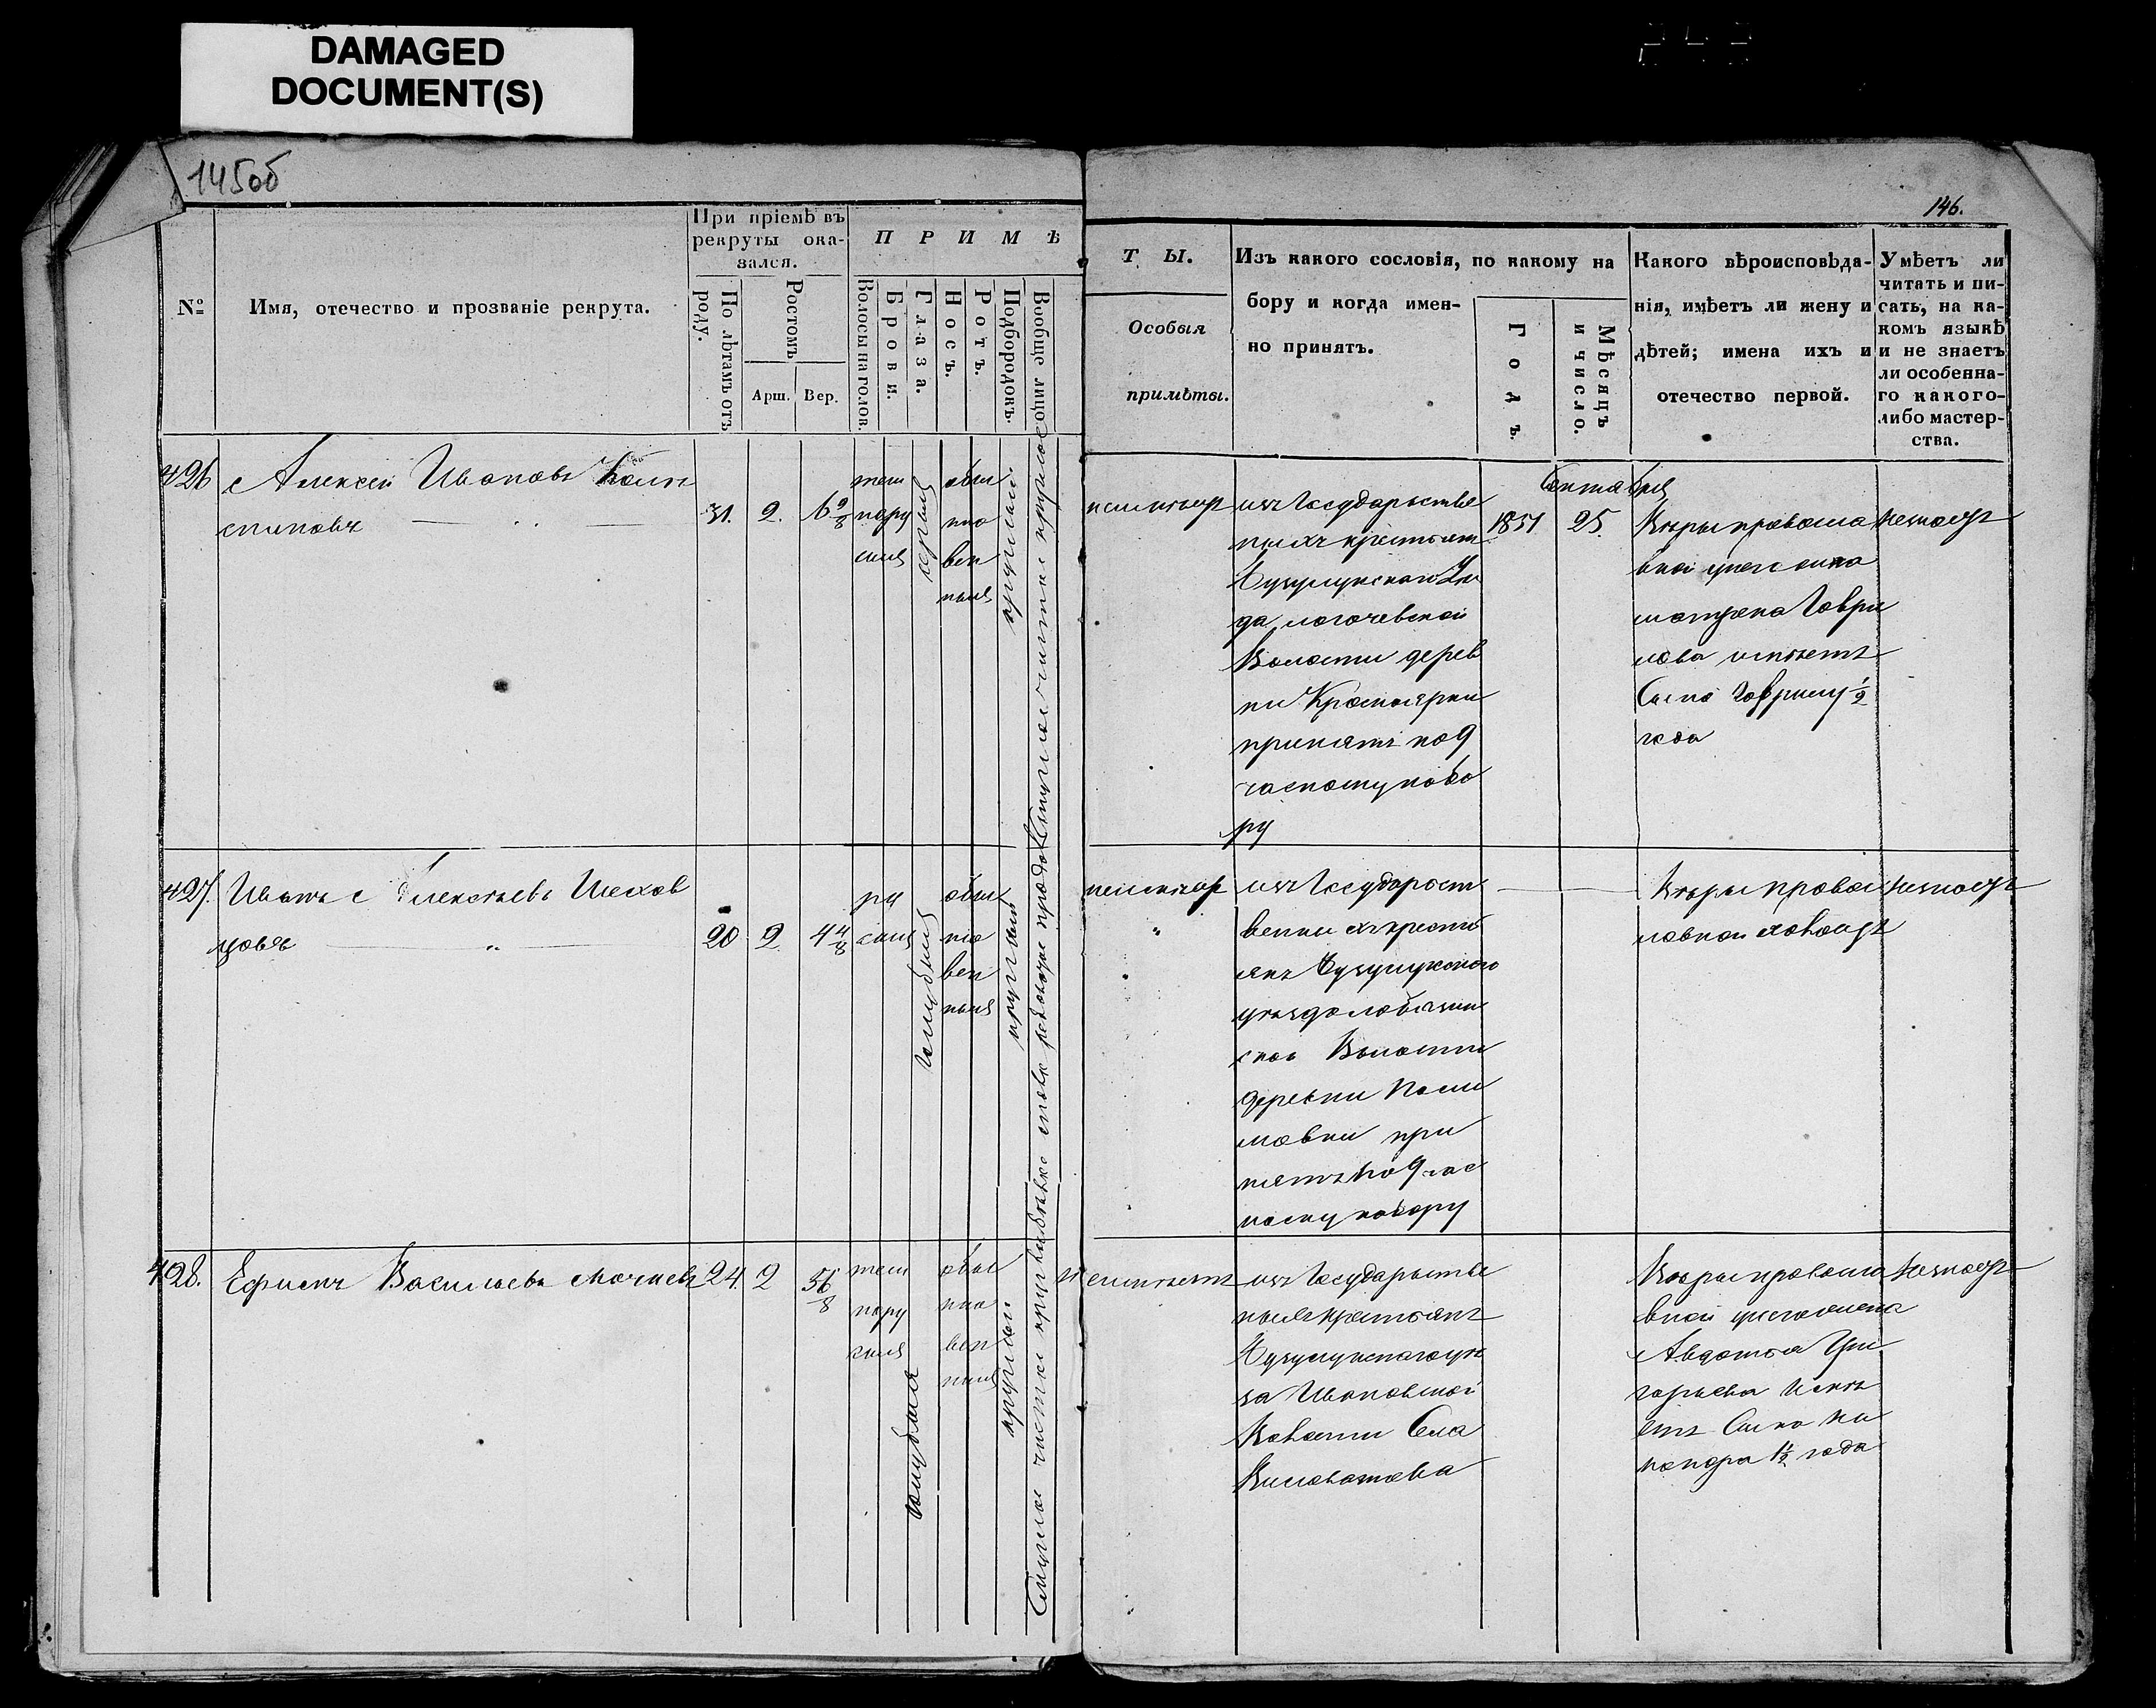 DAMAGED
DOCUMENT(S)
145об
146.
№
Имя, отечество и прозваніе рекрута.
При пріемѣ въ
рекруты ока-
зался.
По лѣтамъ отъ
роду.
Ростомъ
Арш.
Вер.
ПРИМѢ
Волосы на голов.
Брови.
Глаза.
Носъ.
Ротъ.
Подбородокъ.
Вообще лицо
ТЫ.
Особыя
примѣты.
Изъ какого сословія, по какому на
бору и когда имен-
но принятъ.
Годъ.
Мѣсяцъ
и число.
Какого вѣроисповѣда-
нія, имѣетъ ли жену и
дѣтей; имена ихъ и
отечество первой.
Умѣетъ ли
читать и пи-
сать, на ка-
комъ языкѣ
и не знаетъ
ли особенна-
го какого-
либо мастер-
ства.
426
Алексей Ивановъ
31.
2.
6 2/8
темн
нору
сыя
карыя
обык
но
вен
ныя
круглый
неимѣетъ
изъ Государстве
ныхъ крестьян
Бузулукскай Уѣ
да
Волости дерев
ни Красноярки
принятъ по 9
частному набо
ру
1851
Сентября
25.
Вѣры правосла
вной у него жина
матрена Гаври
лова имѣетъ
Сына Гаврилу 1/2
года
незнаетъ
427.
Иванъ Алексѣевъ Шехов
цовъ
20
2
4 4/8
ру
сыя
голубыя
обык
но
вен
ныя
круглый
неимѣет
изъ Государст
венныхъ крестьʼ
янъ Бузулукскаго
уѣзда
ской Волости
деревни
принятъ по 9 час
ному набору
Вѣры правос
лавной холостъ
незнаетъ
428.
Ефимъ Васильевъ
24.
2
5 6/8
темн
нору
сыя
голубыя
обык
но
вен
ныя
круглый
неимѣетъ
изъ Государстве
ныхъ крестьянъ
Бузулукскаго уѣ
за Ивановской
Волости Села
Виловатова
Вѣры правосла
вной у него жена
Авдотья Гри
горьева имѣ
етъ Сына Ни
конора 1 1/2 года
незнаетъ